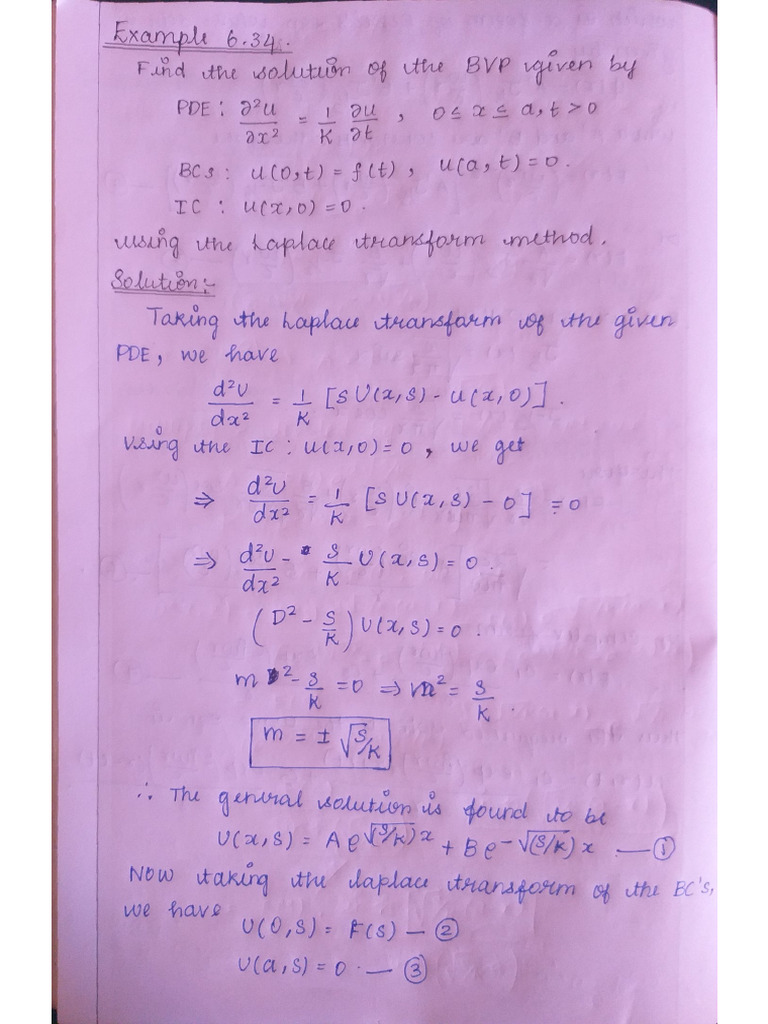 Example 6.34.
Find the solution of the BVP given by
PDE: ∂²u/∂x² = 1/K ∂u/∂t , 0 ≤ x ≤ a, t > 0
BCs: u(0,t) = f(t), u(a,t) = 0.
IC : u(x,0) = 0.
using the Laplace transform method.
Solution:-
Taking the Laplace transform of the given
PDE, we have
d²U/dx² = 1/K [S U(x,s) - u(x,0)].
Using the IC : u(x,0) = 0, we get
⇒ d²U/dx² = 1/K [S U(x,s) - 0] = 0
⇒ d²U/dx² - S/K U(x,s) = 0.
(D² - S/K) U(x,s) = 0.
m² - S/K = 0 ⇒ m² = S/K.
m = ± √S/K
∴ The general solution is found to be
U(x,s) = A e^√(S/K) x + B e^-√(S/K) x — ①
Now taking the laplace transform of the BC's,
we have
U(0,s) = F(s) — ②
U(a,s) = 0 — ③